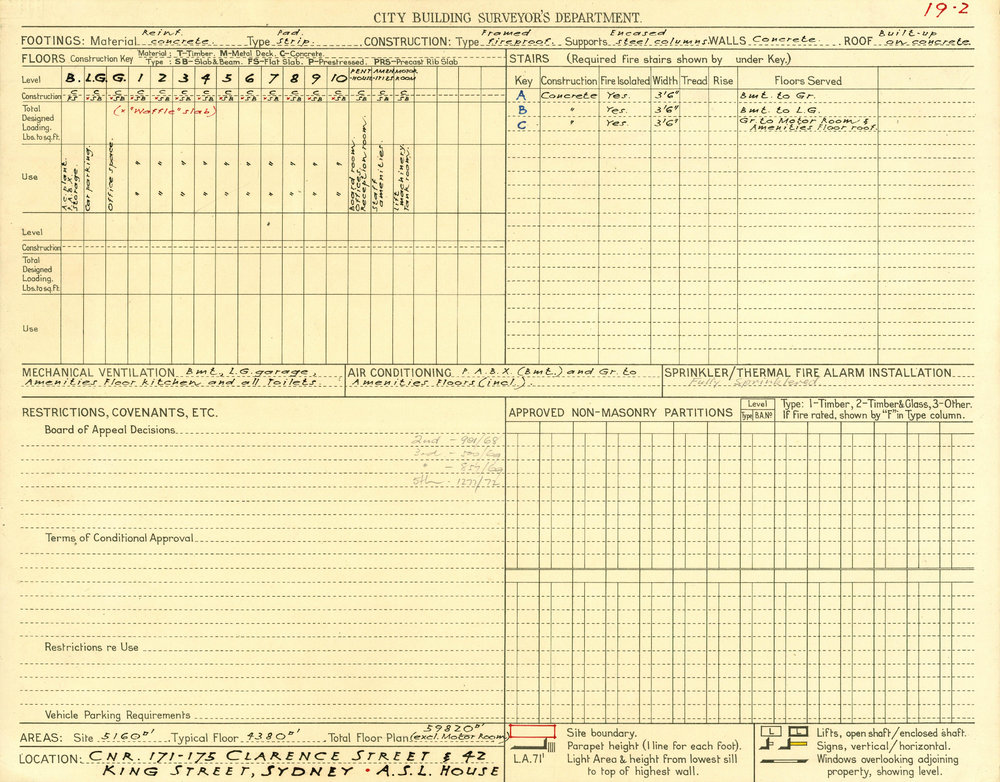 CITY BUILDING SURVEYOR'S DEPARTMENT.
19.2
FOOTINGS: Material Reinf. concrete. Type Pad. strip. CONSTRUCTION: Type Framed fireproof. Supports Encased steel columns WALLS Concrete. ROOF Built-up on concrete.
FLOORS Construction Key Material: T-Timber, M-Metal Deck, C-Concrete.
Type: SB-Slab & Beam. FS-Flat Slab. P-Prestressed. PRS-Precast Rib Slab
Level B. L.G. G. 1 2 3 4 5 6 7 8 9 10 PENT HOUSE AMEN ITIES MOTOR ROOM
Construction C FS C *SB C *SB C *SB C *SB C *SB C *SB C *SB C *SB C *SB C *SB C *SB C *SB C SB C SB C SB
Total Designed Loading. Lbs. to sq. ft.
(* "Waffle" slab)
Use A.c. plant. P.A.B.X. Storage. Car parking. Office space. " " " " " " " " " " Board room. Offices. Reception room Staff amenities. Lift machinery. Tank room.
" " " " " " " " " "
Level
Construction
Total Designed Loading. Lbs. to sq. ft.
Use
STAIRS (Required Fire stairs shown by under Key.)
Key Construction Fire Isolated Width Tread Rise Floors Served
A Concrete Yes. 3'6" Bmt. to Gr.
B " Yes. 3'6" Bmt. to L.G.
C " Yes. 3'6" Gr. to Motor Room & Amenities Floor roof.
MECHANICAL VENTILATION Bmt., L.G. garage,
Amenities Floor kitchen and all Toilets.
AIR CONDITIONING P.A.B.X. (Bmt.) and Gr. to
Amenities Floors (incl.)
SPRINKLER/THERMAL FIRE ALARM INSTALLATION
Fully Sprinklered.
RESTRICTIONS, COVENANTS, ETC.
Board of Appeal Decisions
2nd - 991/68
3rd - 500/69
" - 857/69
5th - 1277/72
Terms of Conditional Approval
Restrictions re Use
Vehicle Parking Requirements
APPROVED NON-MASONRY PARTITIONS
Level
Type B.A.Nº
Type: 1-Timber, 2-Timber & Glass, 3-Other.
If Fire rated, shown by "F" in Type column.
AREAS: Site 5160□' Typical Floor 4380□' Total Floor Plan 59820□' (excl. Motor Room)
LOCATION: CNR. 171-175 CLARENCE STREET & 42
KING STREET, SYDNEY • A.S.L. HOUSE
Site boundary.
Parapet height (1 line for each foot).
L.A. 71' Light Area & height from lowest sill
to top of highest wall.
L
Lifts, open shaft/enclosed shaft.
Signs, vertical/horizontal.
Windows overlooking adjoining
property, showing level.